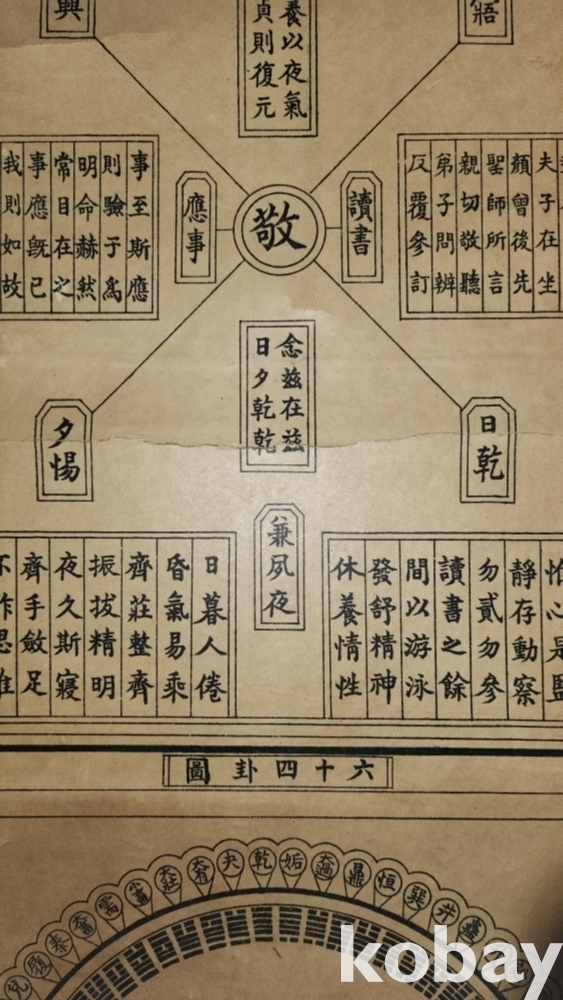 寤
興
養以夜氣
貞則復元
夫子在坐
顔曾後先
聖師所言
親切敬聽
弟子問辨
反覆參訂
讀書
敬
應事
事至斯應
則驗于爲
明命赫然
常目在之
事應旣已
我則如故
念兹在兹
日夕乾乾
日乾
夕惕
兼夙夜
惟心是監
靜存動察
勿貳勿參
讀書之餘
間以游泳
發舒精神
休養情性
日暮人倦
昏氣易乘
齊莊整齊
振拔精明
夜久斯寢
齊手斂足
不作思惟
六十四卦圖
井 巽 恒 鼎 大過 姤 乾 夬 大有 大壯 小畜 需 大畜 泰 履 兌
kobay